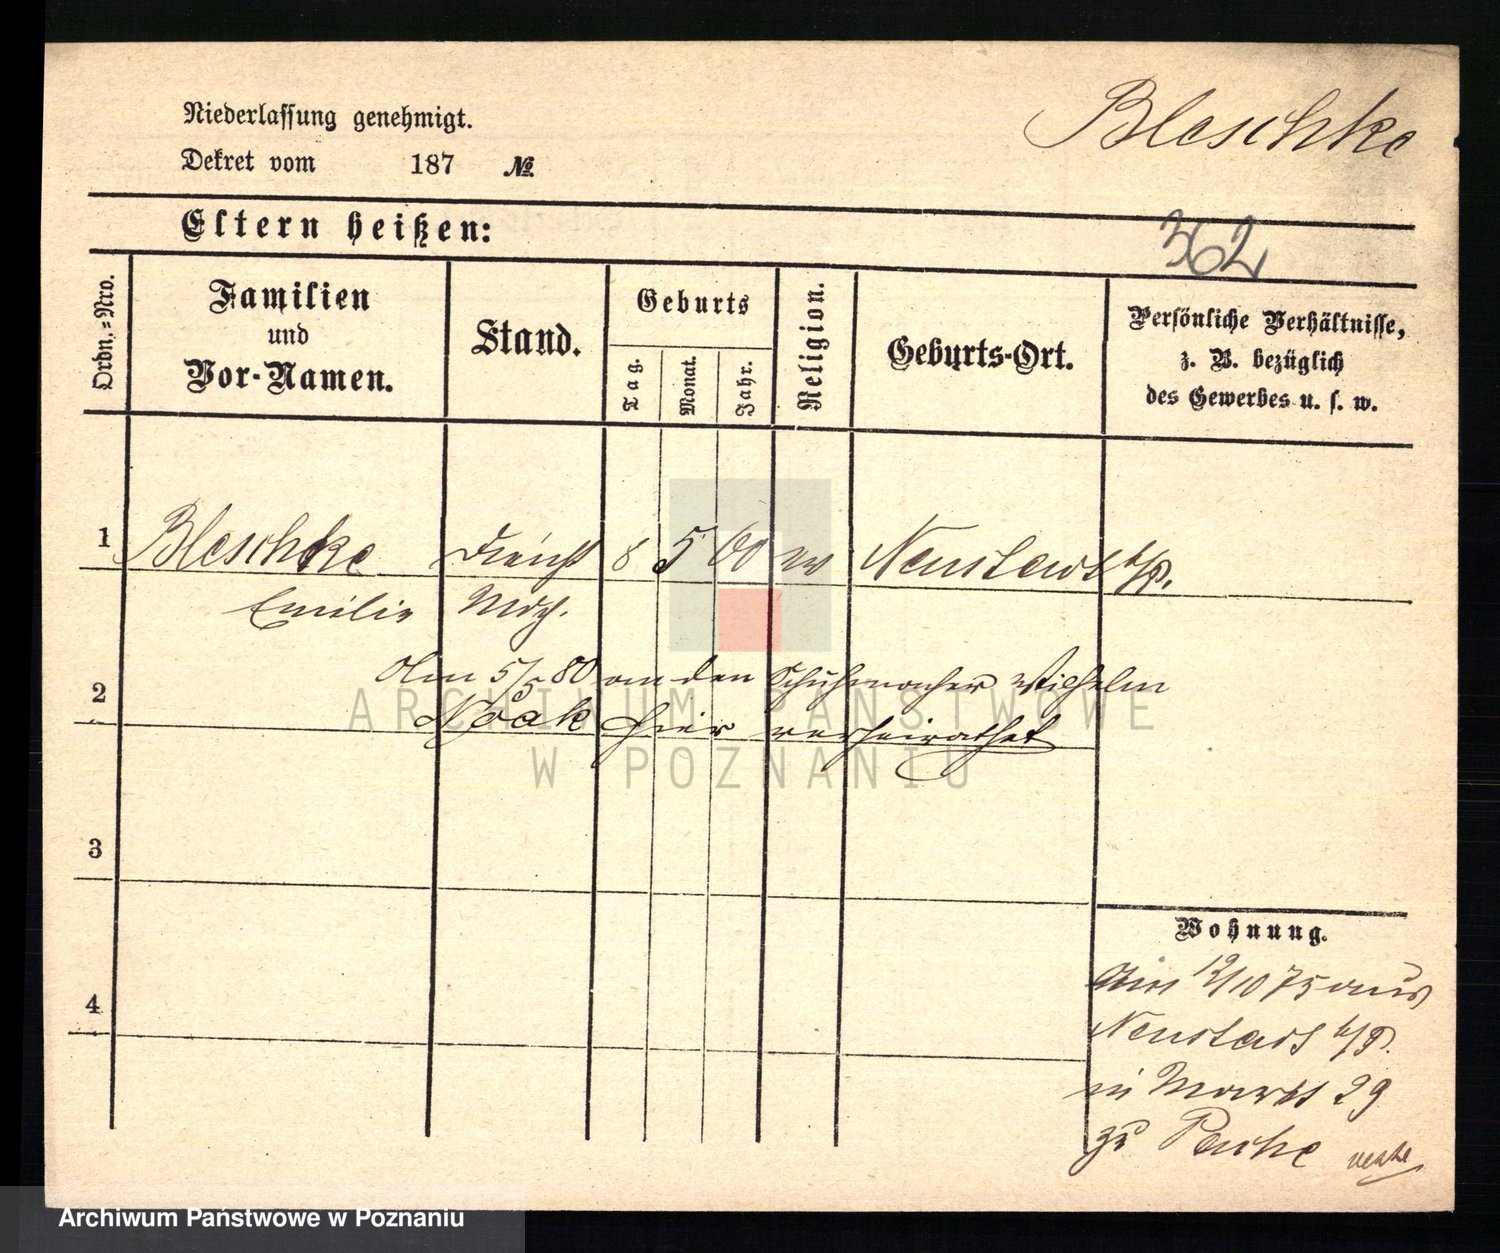 Niederlassung genehmigt.
Dekret vom 187 №
Bleschke
Eltern heißen:
362
Ordn.=Nro.
Familien
und
Vor-Namen.
Stand.
Geburts
Tag.
Monat.
Jahr.
Religion.
Geburts-Ort.
Persönliche Verhältnisse,
z. B. bezüglich
des Gewerbes u. s. w.
1 Bleschke Dienst 8 5 60 Neustadt b/P.
Emilie Mdch.
2 Am 5/5 80 an den Schuhmacher Wilhelm
Noak hier verheirathet
ARCHIWUM PAŃSTWOWE
W POZNANIU
3
4
Wohnung.
Am 12/10 75 aus
Neustadt b/P.
in Markt 29
zu
Archiwum Państwowe w Poznaniu